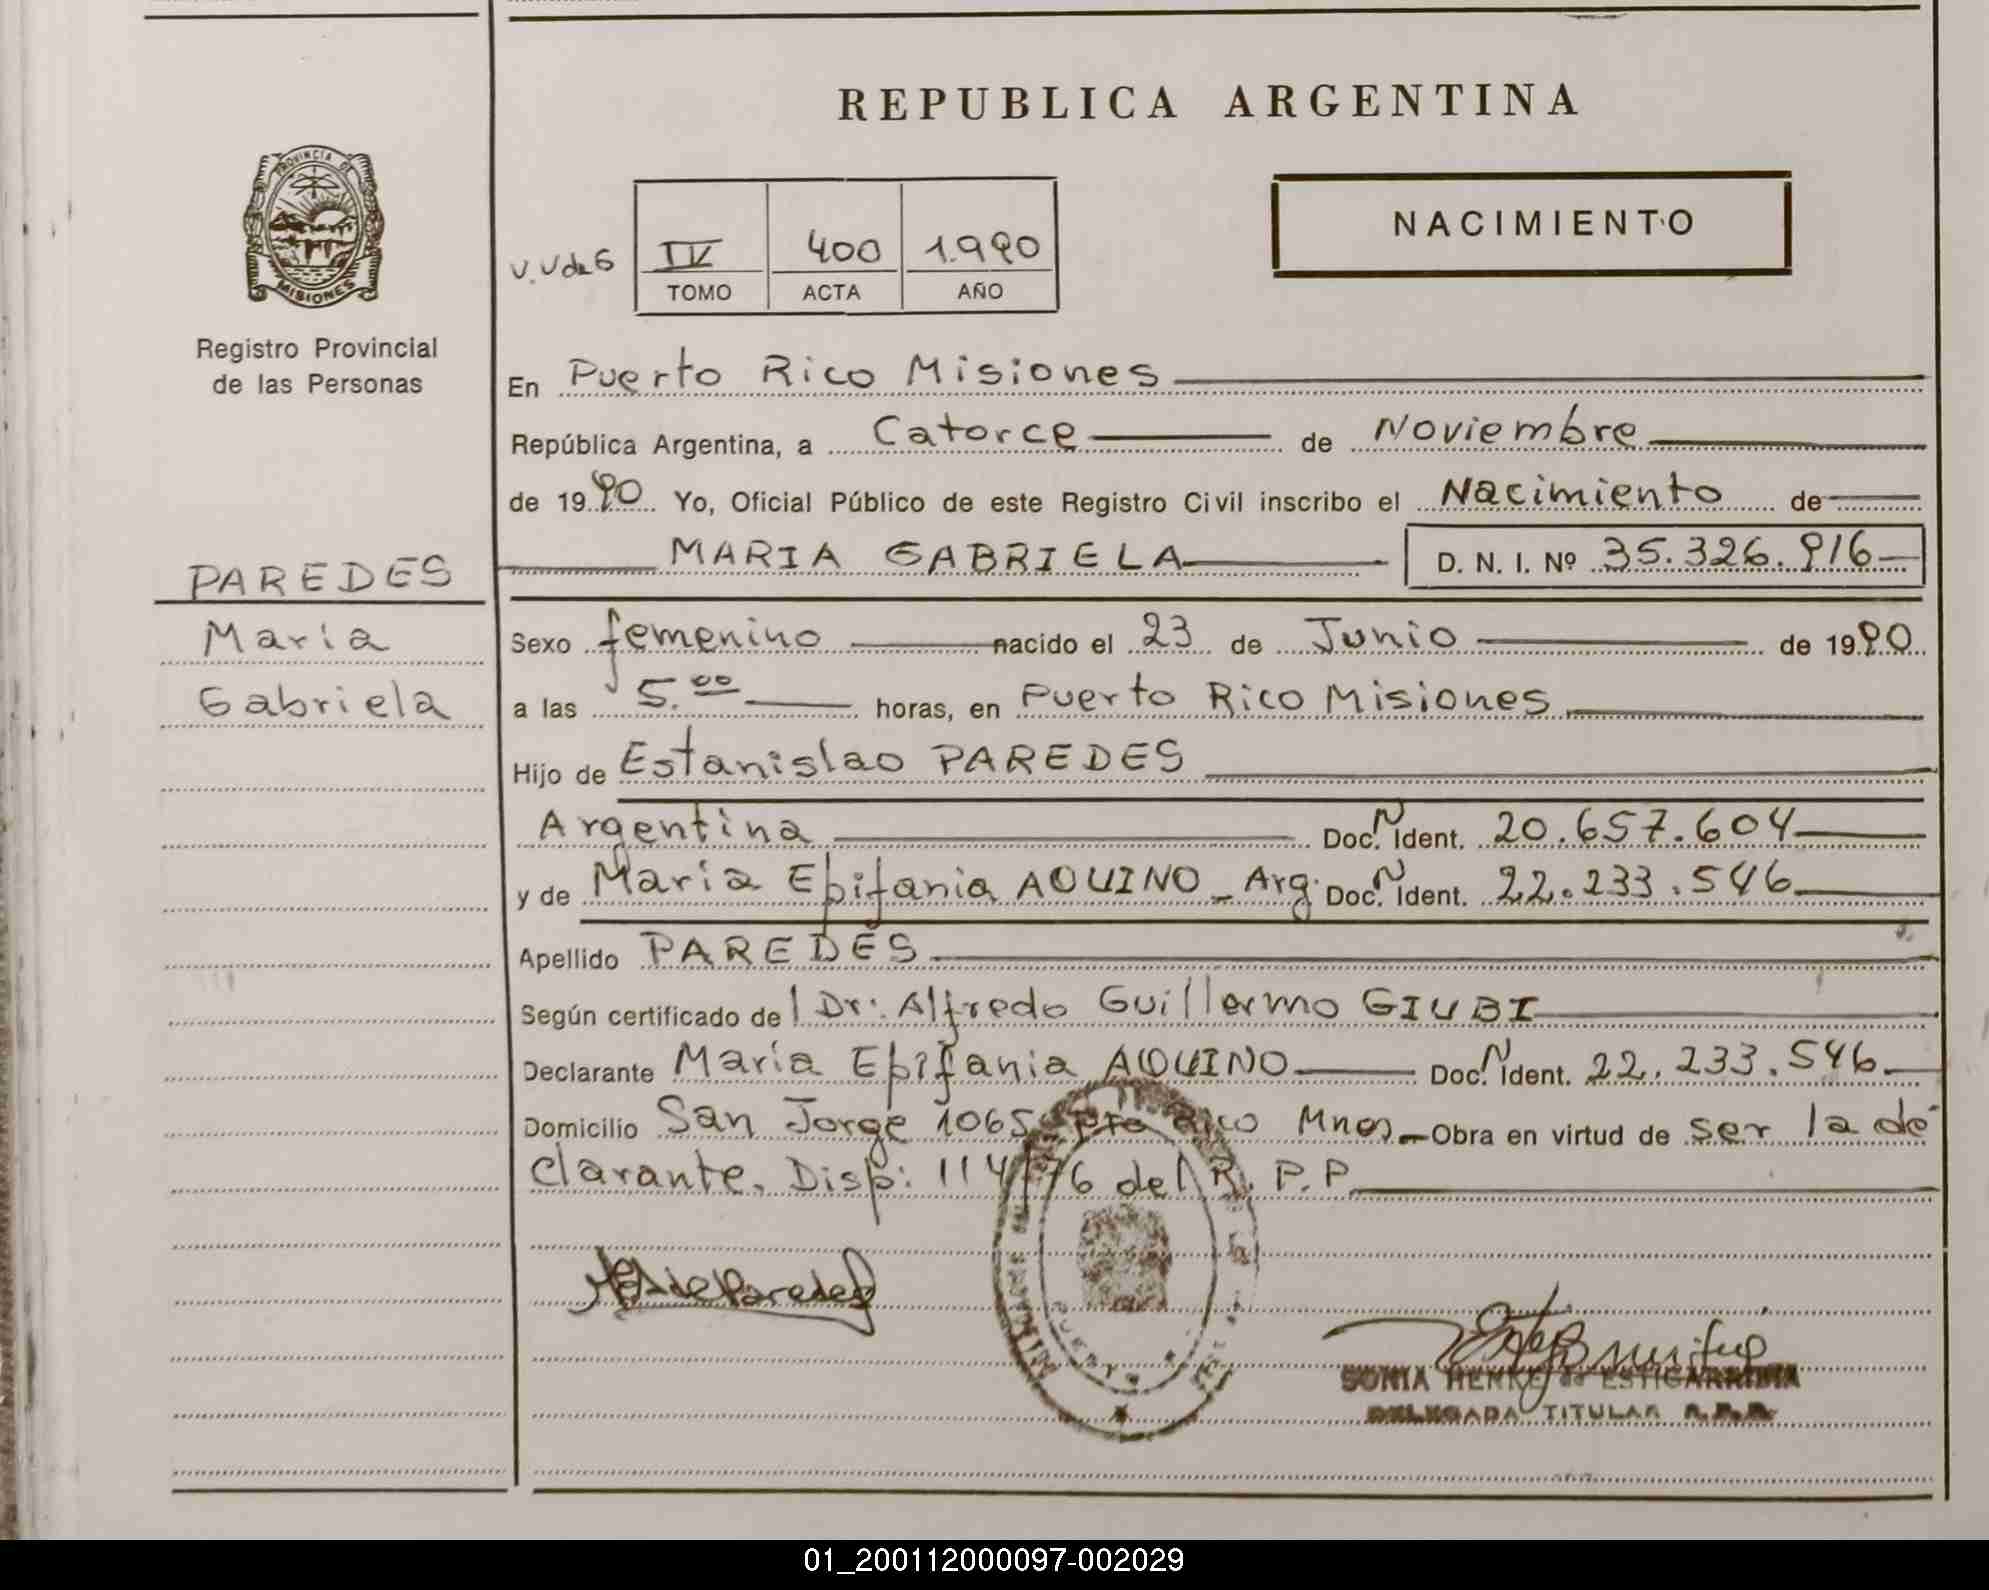 REPUBLICA ARGENTINA
PROVINCIA DE
MISIONES
Registro Provincial
de las Personas
NACIMIENTO
IV 400 1.990
TOMO ACTA AÑO
En Puerto Rico Misiones
República Argentina, a Catorce de Noviembre
de 1990 Yo, Oficial Público de este Registro Civil inscribo el Nacimiento de
MARIA GABRIELA D. N. I. Nº 35.326.916
PAREDES
Maria
Gabriela
Sexo femenino nacido el 23 de Junio de 1990
a las 5.00 horas, en Puerto Rico Misiones
Hijo de Estanislao PAREDES
Argentina Doc. N Ident. 20.657.604
y de Maria Epifania AQUINO - Arg. Doc. N Ident. 22.233.546
Apellido PAREDES
Según certificado de l Dr: Alfredo Guillermo GIUBI
Declarante Maria Epifania AQUINO Doc. N Ident. 22.233.546
Domicilio San Jorge 1065 Pto Rico Mnes - Obra en virtud de ser la de
clarante. Disp: 114/76 del R. P. P.
SONIA HENKE de ESTIGARRIBIA
DELEGADA TITULAR R.P.P.
01_200112000097-002029